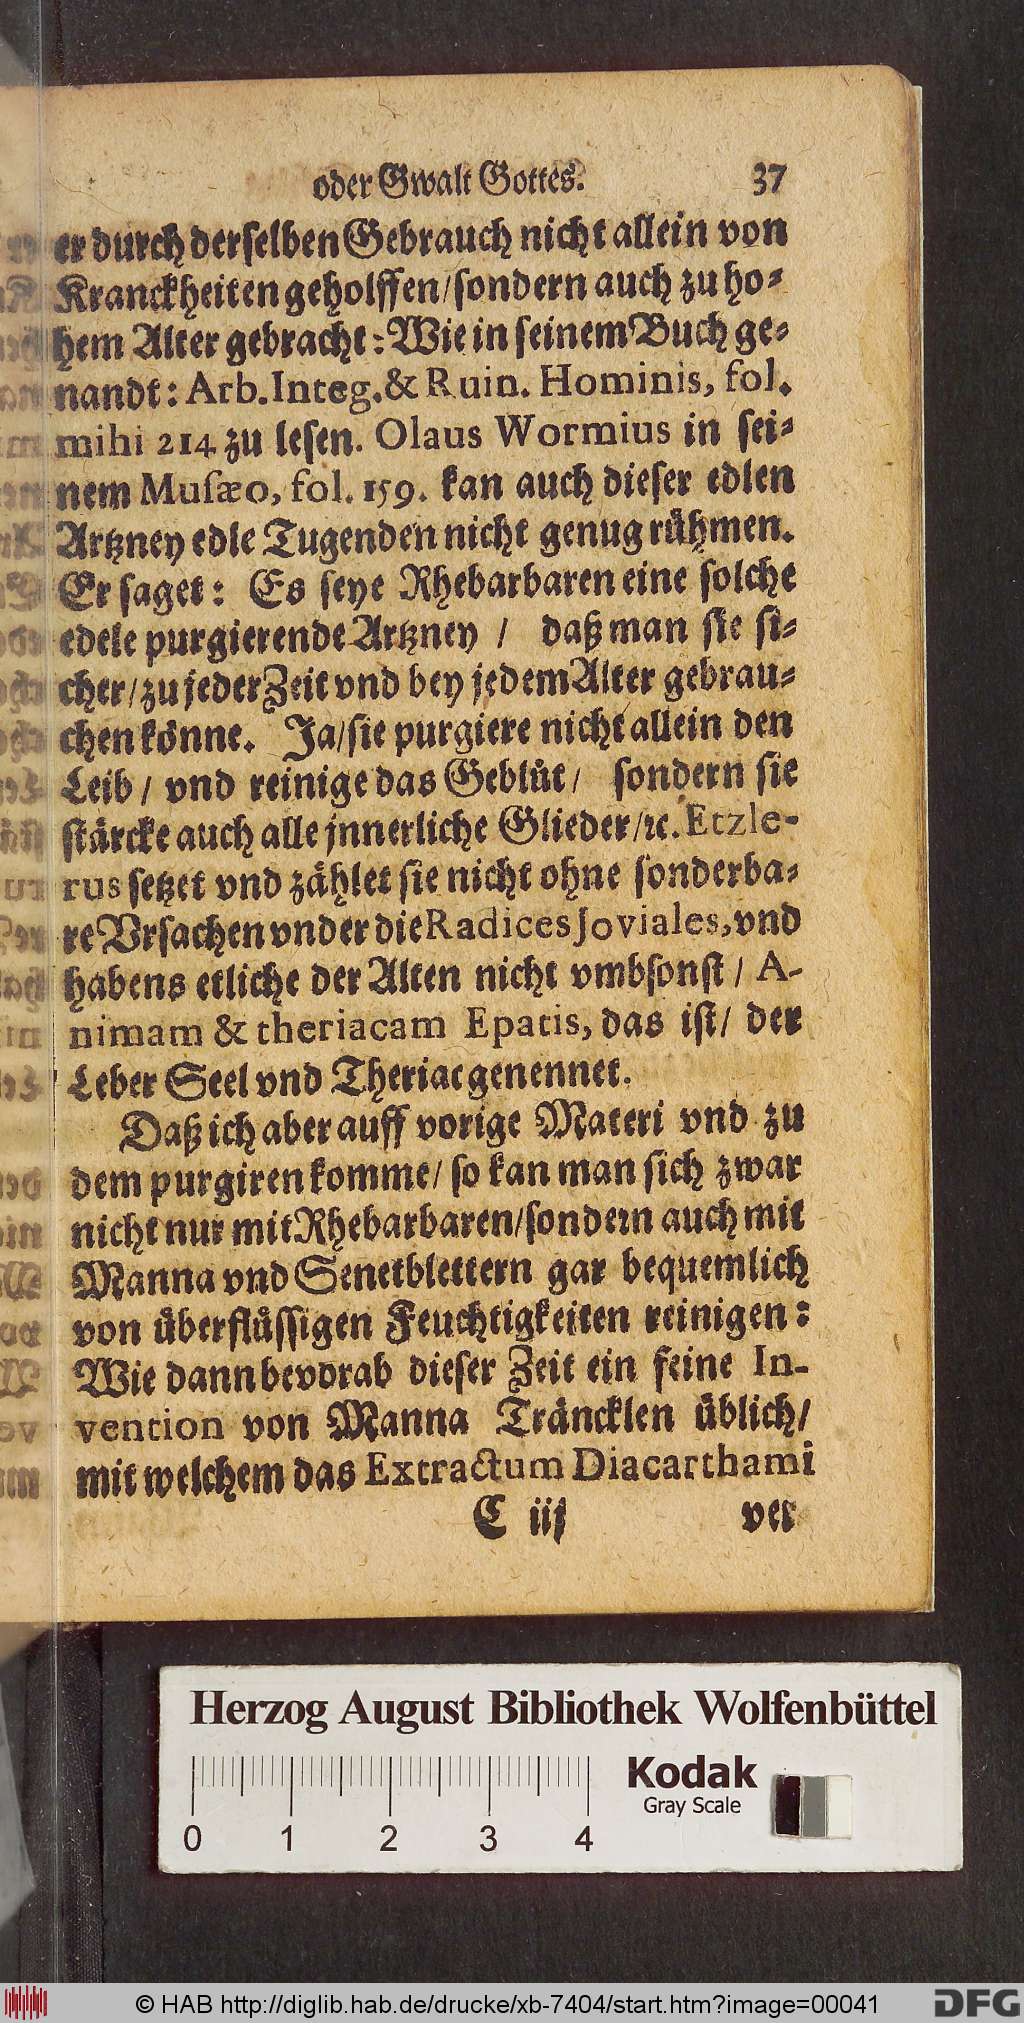 oder Gwalt Gottes. 37
er durch derselben Gebrauch nicht allein von
Kranckheiten geholffen/sondern auch zu ho-
hem Alter gebracht: Wie in seinem Buch ge-
nandt: Arb. Integ. & Ruin. Hominis, fol.
mihi 214 zu lesen. Olaus Wormius in sei-
nem Musæo, fol. 159. kan auch dieser edlen
Artzney edle Tugenden nicht genug rühmen.
Er saget: Es seye Rhebarbaren eine solche
edele purgierende Artzney / daß man sie si-
cher/zu jeder Zeit vnd bey jedem Alter gebrau-
chen könne. Ja/sie purgiere nicht allein den
Leib / vnd reinige das Geblüt / sondern sie
stärcke auch alle jnnerliche Glieder/ꝛc. Etzle-
rus setzet vnd zählet sie nicht ohne sonderba-
re Vrsachen vnder die Radices Joviales, vnd
habens etliche der Alten nicht vmbsonst / A-
nimam & theriacam Epatis, das ist/ der
Leber Seel vnd Theriac genennet.
Daß ich aber auff vorige Materi vnd zu
dem purgiren komme/ so kan man sich zwar
nicht nur mit Rhebarbaren/sondern auch mit
Manna vnd Senetblettern gar bequemlich
von überflüssigen Feuchtigkeiten reinigen:
Wie dann bevorab dieser Zeit ein feine In-
vention von Manna Träncklen üblich/
mit welchem das Extractum Diacarthami
C iij ver
Herzog August Bibliothek Wolfenbüttel
Kodak
Gray Scale
0 1 2 3 4
© HAB http://diglib.hab.de/drucke/xb-7404/start.htm?image=00041 DFG